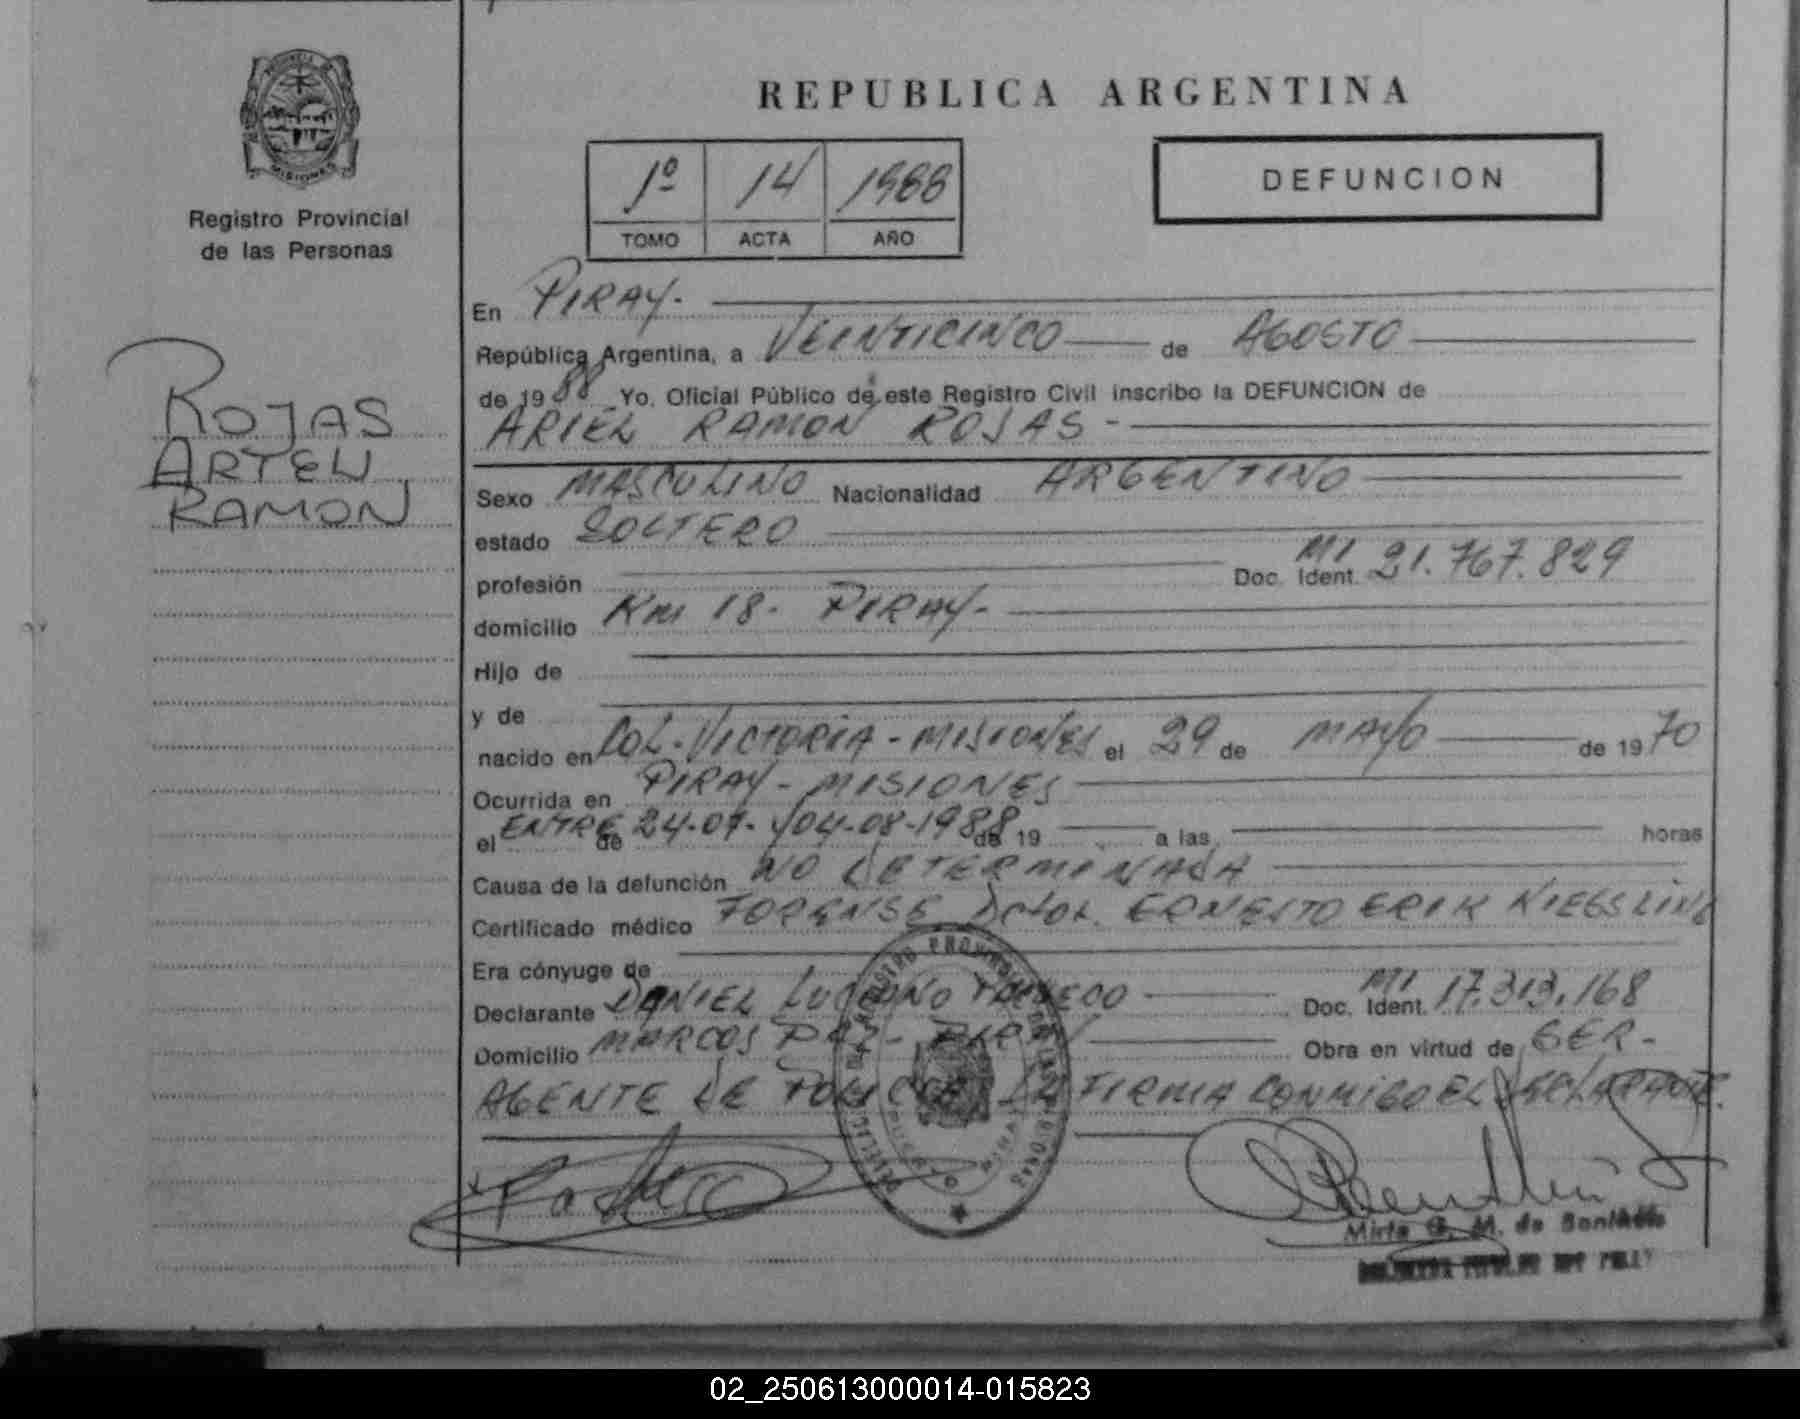 PROVINCIA DE
MISIONES
Registro Provincial
de las Personas
ROJAS
ARIEL
RAMON
REPUBLICA ARGENTINA
1º 14 1988
TOMO ACTA AÑO
DEFUNCION
En PIRAY.
República Argentina, a VEINTICINCO de AGOSTO
de 1988 Yo, Oficial Público de este Registro Civil inscribo la DEFUNCION de
ARIEL RAMON ROJAS -
Sexo MASCULINO Nacionalidad ARGENTINO
estado SOLTERO
profesión Doc. Ident. MI 21.767.829
domicilio Km 18. PIRAY-
Hijo de
y de
nacido en COL. VICTORIA - MISIONES el 29 de MAYO de 1970
Ocurrida en PIRAY - MISIONES
el ENTRE de 24-07- y 04-08-1988 de 19 a las horas
Causa de la defunción NO DETERMINADA
Certificado médico FORENSE Dctor. ERNESTO ERIK KIEGSLING
Era cónyuge de
Declarante DANIEL LUCIANO PACHECO Doc. Ident. MI 17.313.168
Domicilio MARCOS PAZ - PIRAY Obra en virtud de SER -
AGENTE DE POLICIA FIRMA CONMIGO EL DECLARANTE.
Mirta G. M. de
02_250613000014-015823